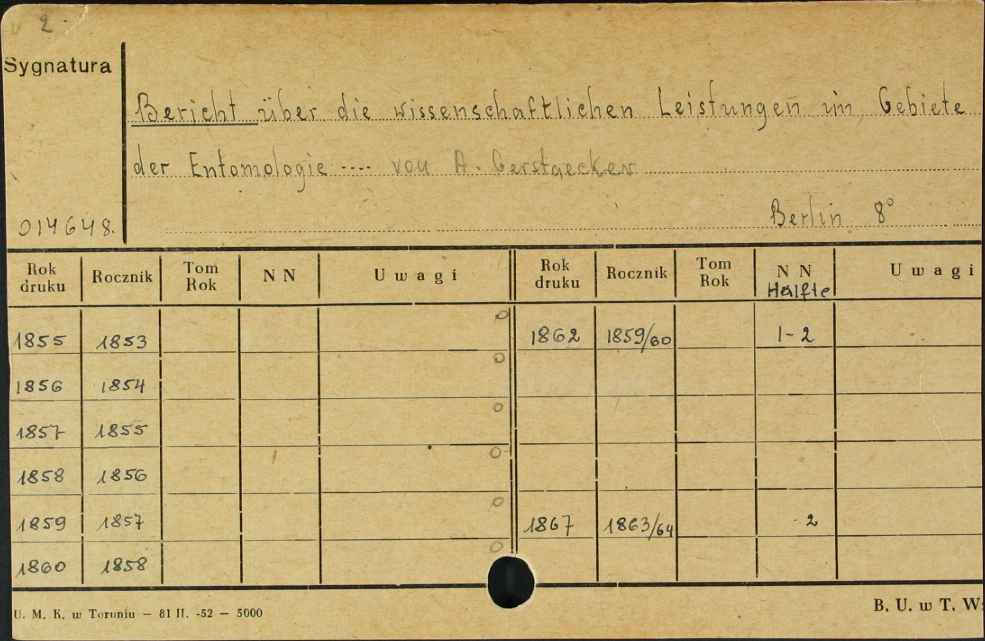 2.
Sygnatura
Bericht über die wissenschaftlichen Leistungen im Gebiete
der Entomologie .... von A. Gerstaecker
014648. Berlin 8°
Rok druku Rocznik Tom Rok N N Uwagi Rok druku Rocznik Tom Rok N N Uwagi
Hälfte
1855 1853 1862 1859/60 1-2
1856 1854
1857 1855
1858 1856
1859 1857 1867 1863/64 2
1860 1858
U. M. K. w Toruniu — 81 II. -52 — 5000 B. U. w T. W